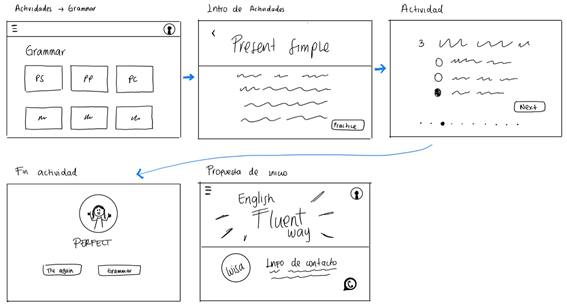 Actividades → Grammar
Grammar
PS
PP
PC
Intro de Actividades
Present Simple
Practice
Actividad
3
Next
Fin actividad
PERFECT
Try again
Grammar
Propuesta de inicio
English
Fluent
way
Info de contacto